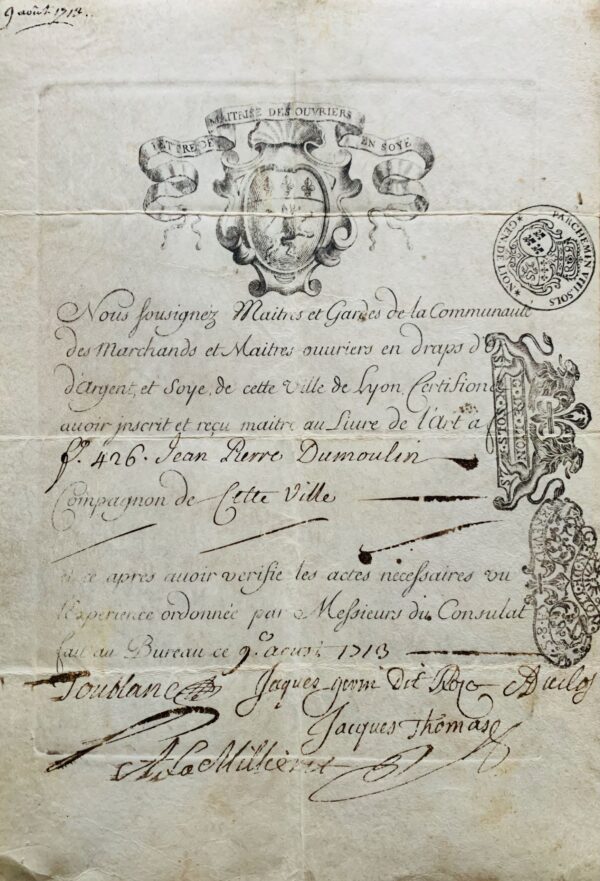 9 août 1713.
LETTRE DE MAITRISE DES OUVRIERS EN SOYE
GEN. DE LION PARCHEMIN VIII SOLS
Nous sousignez Maitres et Gardes de la Communauté
des Marchands et Maitres ouvriers en draps d'Or
d'Argent, et Soye, de cette Ville de Lyon, Certifions
avoir jnscrit et reçu maitre au Livre de l'Art a
f.° 426. Jean Pierre Dumoulin
Compagnon de Cette Ville
et ce apres avoir verifié les actes necessaires vu
l'experience ordonnée par Messieurs du Consulat
fait au Bureau ce 9.e aoust 1713
Toublanc Jaques germ Dit Roc
Jacques Thomas